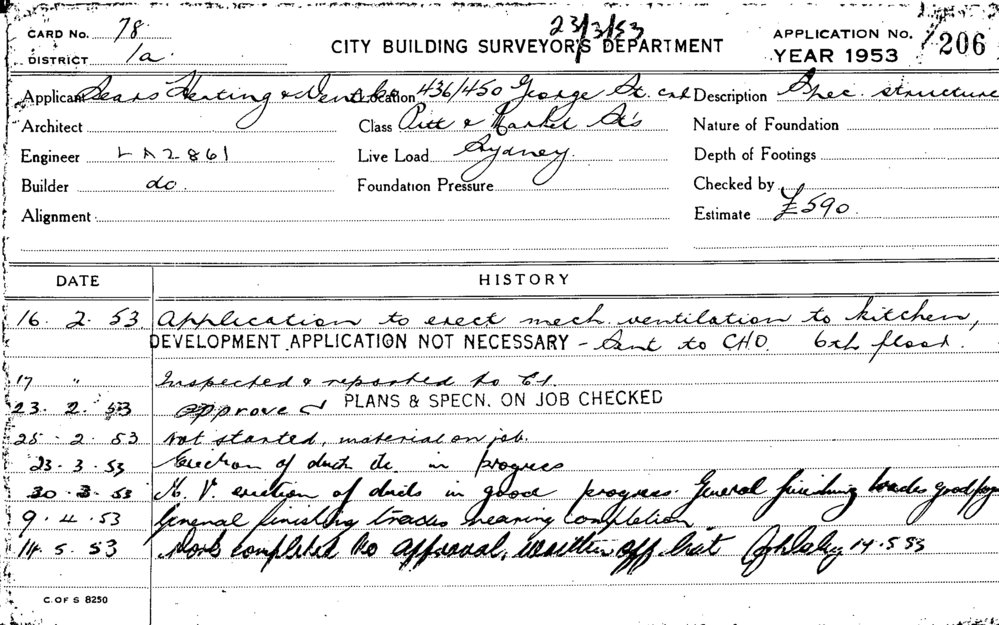 23/3/53
CARD No. 78 CITY BUILDING SURVEYOR'S DEPARTMENT APPLICATION No. 206
DISTRICT 1a YEAR 1953
Applicant Sears Heating & Location 436/450 George St. Description Spec. structure
Architect Class Pitt & Market St's Nature of Foundation
Engineer LA2861 Live Load Sydney. Depth of Footings
Builder do. Foundation Pressure Checked by
Alignment Estimate £590.
DATE HISTORY
16. 2. 53 Application to erect mech. ventilation to kitchen,
DEVELOPMENT APPLICATION NOT NECESSARY - Sent to CHO. 6th floor.
17 " Inspected & reported to
23. 2. 53 approved PLANS & SPECN. ON JOB CHECKED
25. 2. 53 Not started, material on job.
23. 3. 53 Erection of duct etc. in progress
30. 3. 53 M. V. erection of ducts in good progress. General finishing trades good
9. 4. 53 General finishing trades nearing completion.
14. 5. 53 Work completed to approval, written off 14.5.53
C. OF S 8250